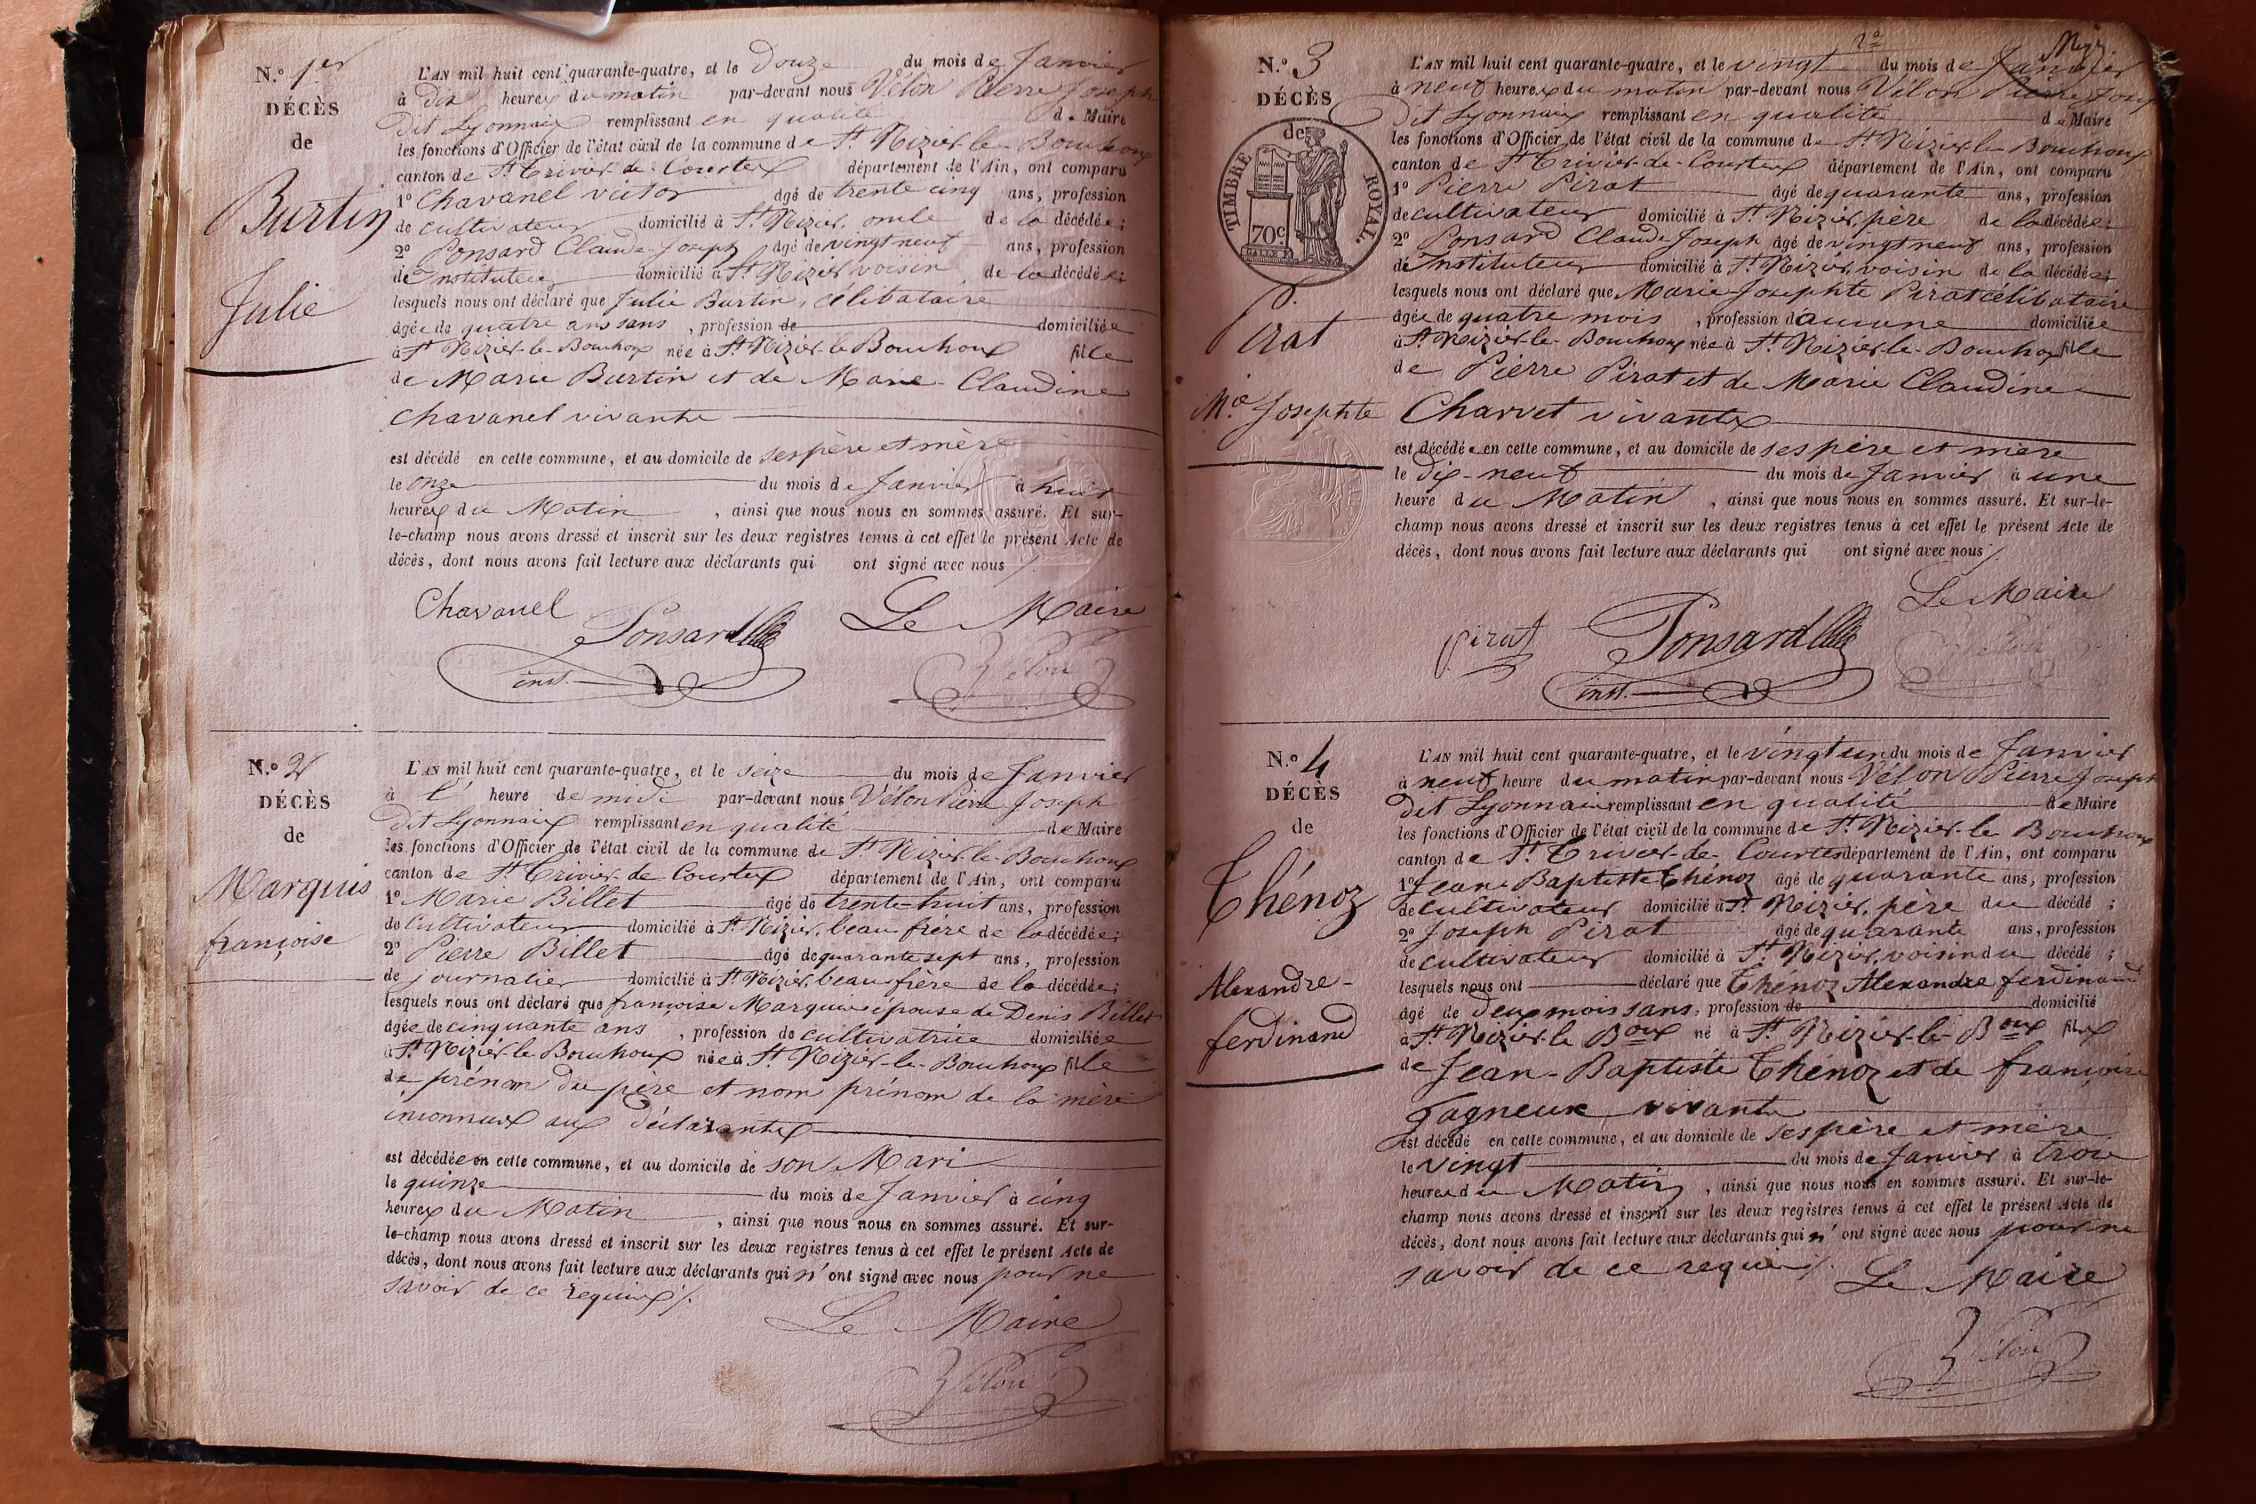 N.° 1er
DÉCÈS
de
Burtin
Julie
L'AN mil huit cent quarante-quatre, et le Douze du mois de Janvier
à Dix heures du matin par-devant nous Vélon Pierre Joseph
dit Lyonnais remplissant en qualité de Maire
les fonctions d'Officier de l'état civil de la commune de St. Nizier-le-Bouchoux
canton de St. Trivier-de-Courtes département de l'Ain, ont comparu
1° Chavanel victor âgé de trente cinq ans, profession
de cultivateur domicilié à St. Nizier, oncle de la décédée;
2° Ponsard Claude-Joseph âgé de vingt neuf ans, profession
de Instituteur domicilié à St. Nizier voisin de la décédée;
lesquels nous ont déclaré que Julie Burtin, célibataire
âgée de quatre ans sans, profession de domiciliée
à St Nizier-le-Bouchoux née à St. Nizier-le-Bouchoux fille
de Marie Burtin et de Marie-Claudine
Chavanel vivants
est décédé en cette commune, et au domicile de ses père et mère
le onze du mois de Janvier à huit
heures du Matin, ainsi que nous nous en sommes assuré. Et sur-
le-champ nous avons dressé et inscrit sur les deux registres tenus à cet effet le présent Acte de
décès, dont nous avons fait lecture aux déclarants qui ont signé avec nous
Chavanel Ponsard Le Maire
inst. Vélon
N.° 2
DÉCÈS
de
Marquis
françoise
L'AN mil huit cent quarante-quatre, et le seize du mois de Janvier
à l' heure de midi par-devant nous Vélon Pierre Joseph
dit Lyonnais remplissant en qualité de Maire
les fonctions d'Officier de l'état civil de la commune de St. Nizier-le-Bouchoux
canton de St. Trivier-de-Courtes département de l'Ain, ont comparu
1° Marie Billet âgé de trente-huit ans, profession
de Cultivateur domicilié à St. Nizier, beau frère de la décédée;
2° Pierre Billet âgé de quarante sept ans, profession
de journalier domicilié à St. Nizier, beau frère de la décédée;
lesquels nous ont déclaré que françoise Marquis épouse de Denis Billet
âgée de cinquante ans, profession de cultivatrice domiciliée
à St. Nizier-le-Bouchoux née à St. Nizier-le-Bouchoux fille
de prénom du père et nom prénom de la mère
inconnus aux déclarants
est décédée en cette commune, et au domicile de son Mari
le quinze du mois de Janvier à cinq
heures du Matin, ainsi que nous nous en sommes assuré. Et sur-
le-champ nous avons dressé et inscrit sur les deux registres tenus à cet effet le présent Acte de
décès, dont nous avons fait lecture aux déclarants qui n'ont signé avec nous pour ne
savoir de ce requis
Le Maire
Vélon
N.° 3
DÉCÈS
de
TIMBRE ROYAL.
70c.
Pirat
Mie Josephte
L'AN mil huit cent quarante-quatre, et le vingt du mois de Janvier
à neuf heures du matin par-devant nous Vélon Pierre Joseph
dit Lyonnais remplissant en qualité de Maire
les fonctions d'Officier de l'état civil de la commune de St. Nizier-le-Bouchoux
canton de St Trivier-de-Courtes département de l'Ain, ont comparu
1° Pierre Pirat âgé de quarante ans, profession
de cultivateur domicilié à St. Nizier, père de la décédée;
2° Ponsard Claude Joseph âgé de vingt neuf ans, profession
de Instituteur domicilié à St. Nizier, voisin de la décédée;
lesquels nous ont déclaré que Marie-Josephte Pirat célibataire
âgée de quatre mois, profession d'aucune domiciliée
à St. Nizier-le-Bouchoux née à St. Nizier-le-Bouchoux fille
de Pierre Pirat et de Marie Claudine
Charvet vivants
est décédée en cette commune, et au domicile de ses père et mère
le Dix-neuf du mois de Janvier à une
heure du Matin, ainsi que nous nous en sommes assuré. Et sur-le-
champ nous avons dressé et inscrit sur les deux registres tenus à cet effet le présent Acte de
décès, dont nous avons fait lecture aux déclarants qui ont signé avec nous
Le Maire
pirat Ponsard Vélon
inst.
N.° 4
DÉCÈS
de
Thénoz
Alexandre-
ferdinand
L'AN mil huit cent quarante-quatre, et le vingt un du mois de Janvier
à neuf heure du matin par-devant nous Vélon Pierre Joseph
dit Lyonnais remplissant en qualité de Maire
les fonctions d'Officier de l'état civil de la commune de St. Nizier-le-Bouchoux
canton de St. Trivier-de-Courtes département de l'Ain, ont comparu
1° Jean-Baptiste Thénoz âgé de quarante ans, profession
de cultivateur domicilié à St. Nizier, père du décédé;
2° Joseph Pirat âgé de quarante ans, profession
de cultivateur domicilié à St. Nizier, voisin du décédé;
lesquels nous ont déclaré que Thénoz Alexandre ferdinand
âgé de deux mois sans, profession de domicilié
à St. Nizier-le-Boux né à St. Nizier-le-Boux fils
de Jean-Baptiste Thénoz et de françoise
Gagneux vivants
est décédé en cette commune, et au domicile de ses père et mère
le vingt du mois de Janvier à trois
heures du Matin, ainsi que nous nous en sommes assuré. Et sur-le-
champ nous avons dressé et inscrit sur les deux registres tenus à cet effet le présent Acte de
décès, dont nous avons fait lecture aux déclarants qui n'ont signé avec nous pour ne
savoir de ce requis. Le Maire
Vélon